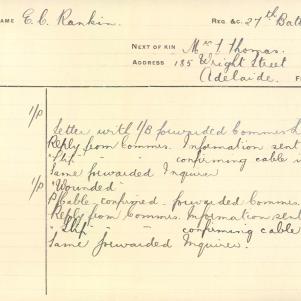 NAME E. C. Rankin. REG &C. 27th Batt
NEXT OF KIN Mrs F Thomas.
ADDRESS 185 Wright Street
Adelaide. F
1/P Letter with 1/B forwarded Commes
Reply from Commes. Information sent
" " confirming cable
Same forwarded Inquirer
1/P "Wounded"
Cable confirmed forwarded Commes.
Reply from Commes. Information sent
" " confirming cable
Same forwarded Inquirer.